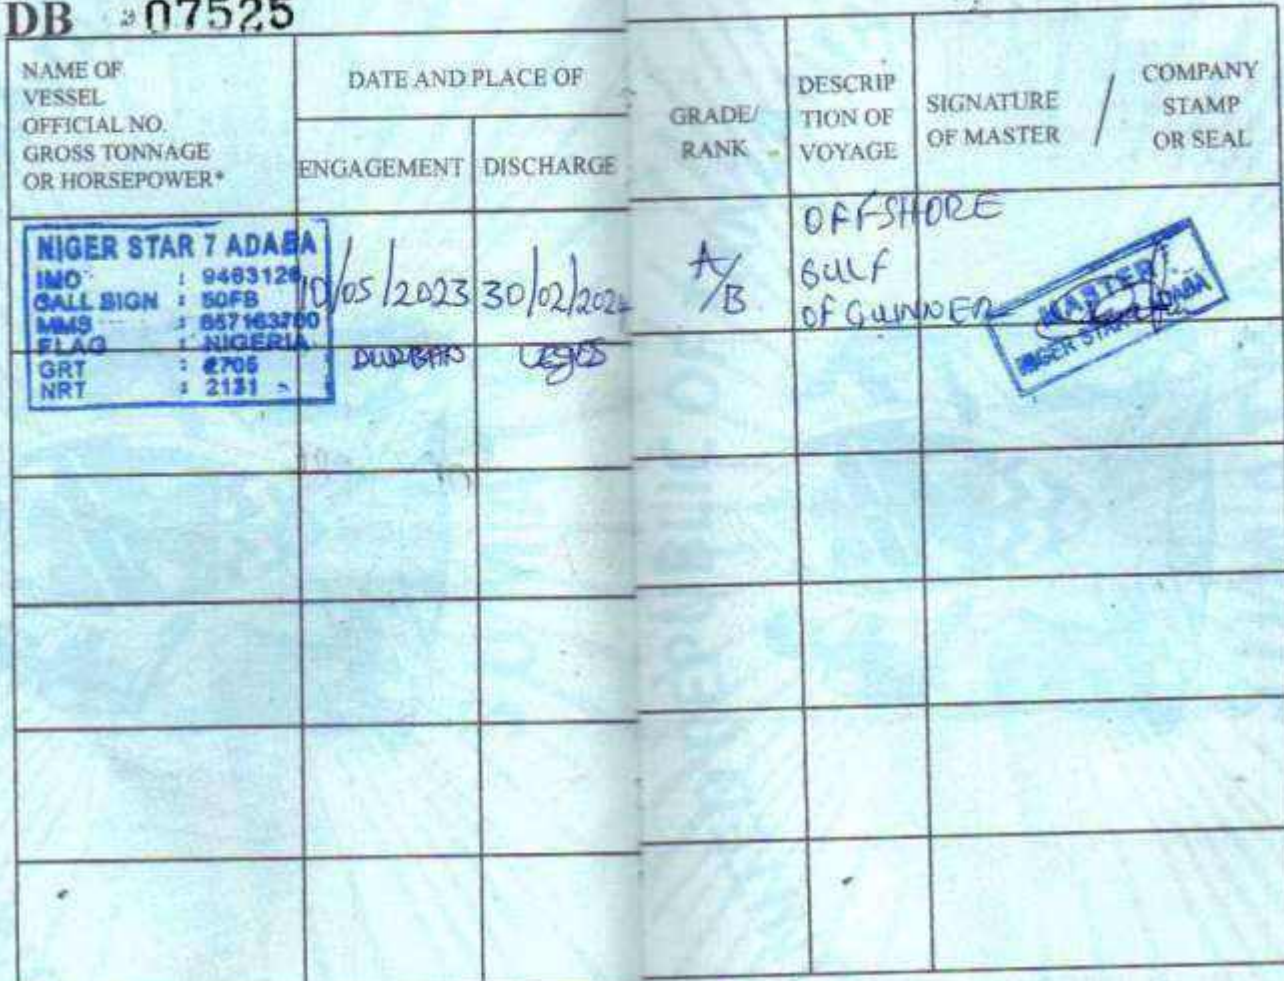 DB 07525
NAME OF
VESSEL
OFFICIAL NO.
GROSS TONNAGE
OR HORSEPOWER*
DATE AND PLACE OF
ENGAGEMENT
DISCHARGE
GRADE/
RANK
DESCRIP
TION OF
VOYAGE
SIGNATURE
OF MASTER
/
COMPANY
STAMP
OR SEAL
NIGER STAR 7 ADABA
IMO : 9463126
CALL SIGN : 5OFB
MMS :
FLAG : NIGERIA
GRT : 2706
NRT : 2131
10/05/2023
DURBAN
30/02/2024
LAGOS
A/B
OFFSHORE
GULF
OF GUINNER
MASTER
NIGER STAR 7 ADABA